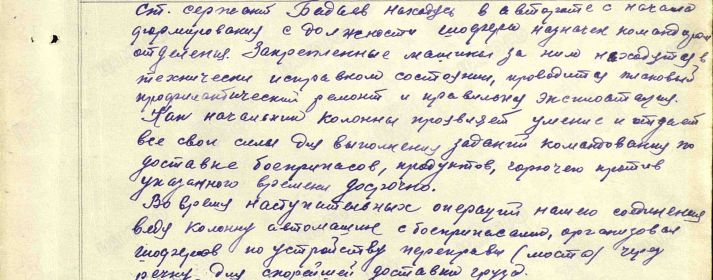 Ст. сержант Бадаев находясь в автороте с начала
формирования с должности шофера назначен командиром
отделения. Закрепленные машины за ним находятся в
технически исправном состоянии, проводится плановый
профилактический ремонт и правильная эксплоатация.
Как начальник колонны проявляет умение и отдает
все свои силы для выполнения заданий командования по
доставке боеприпасов, продуктов, горючего против
указанного времени досрочно.
Во время наступательных операций нашего соединения
ведя колонну автомашин с боеприпасами, организовал
шоферов по устройству переправы (моста) через
речку для скорейшей доставки груза.